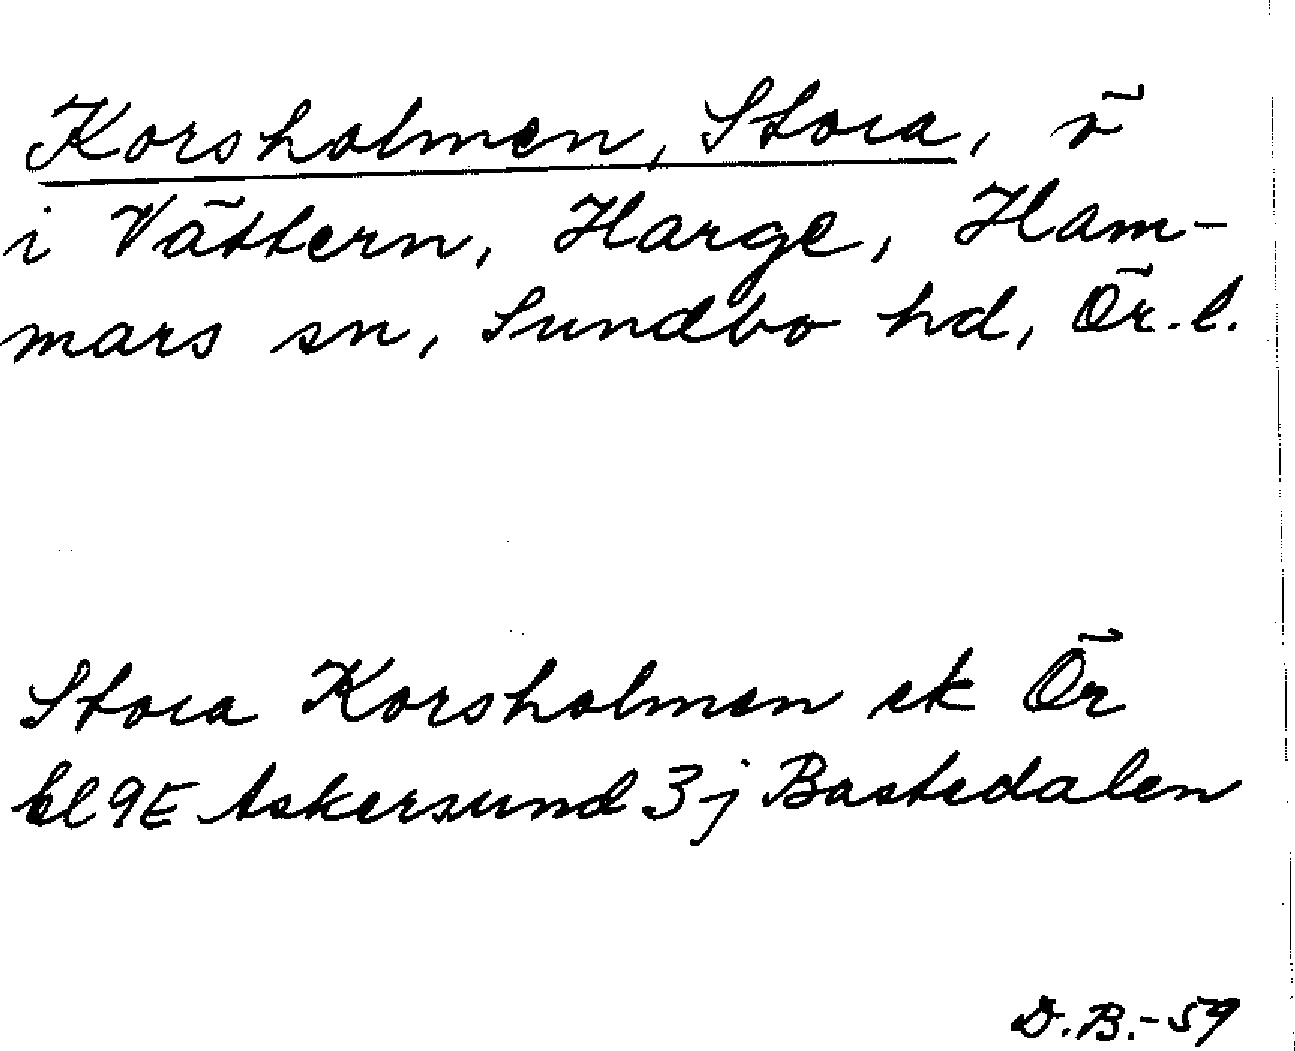 Korsholmen, Stora, ö
i Vättern, Harge, Ham-
mars sn, Sundbo hd, Ör. l.
Stora Korsholmen ek Ör
bl 9E Askersund 3j Bastedalen
D.B.-59